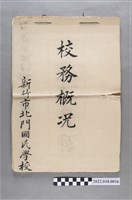 校務概况
新竹市北門國民學校